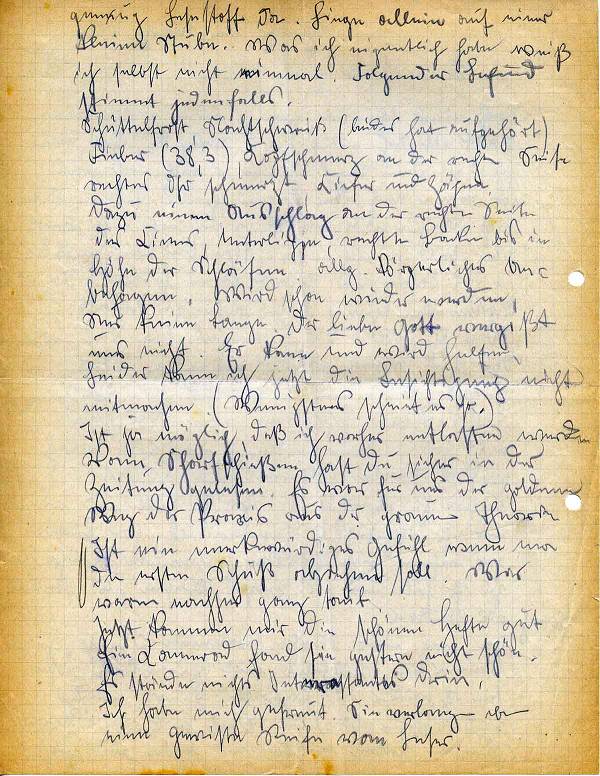 genug Lesestoff da. Liege allein auf einer
kleinen Stube. Was ich eigentlich habe weiß
ich selbst nicht einmal. Folgender Befund
stimmt jedenfalls.
Schüttelfrost, Nachtschweiß (beides hat aufgehört)
Fieber (38,3), Kopfschmerz an der rechten Seite
rechtes Ohr schmerzt, Kiefer und Zähne.
Dazu einen Ausschlag an der rechten Seite
des Kinns, Unterlippe, rechte Backe bis in
Höhe der Schläfen. allg. körperliches Un-
behagen. Wird schon wieder werden,
Nur keine Bange. Der liebe Gott vergißt
uns nicht. Er kann und wird helfen.
Leider kann ich jetzt die Besichtigung nicht
mitmachen (Wenigstens scheint es so.)
Ist ja möglich, daß ich vorher entlassen werden
kann. Scharfschießen hast Du sicher in der
Zeitung gelesen. Es war für uns der goldene
Weg der Praxis aus der grauen Theorie
Ist ein merkwürdiges Gefühl wenn man
den ersten Schuß abgeben soll. Wir
waren nachher ganz taub.
Jetzt kommen mir die schönen Hefte gut
Ein Kamerad fand sie gestern nicht schön.
Es stände nichts Interessantes drin.
Ich habe mich gefreut. Sie verlangen eben
eine gewisse Reife vom Leser.